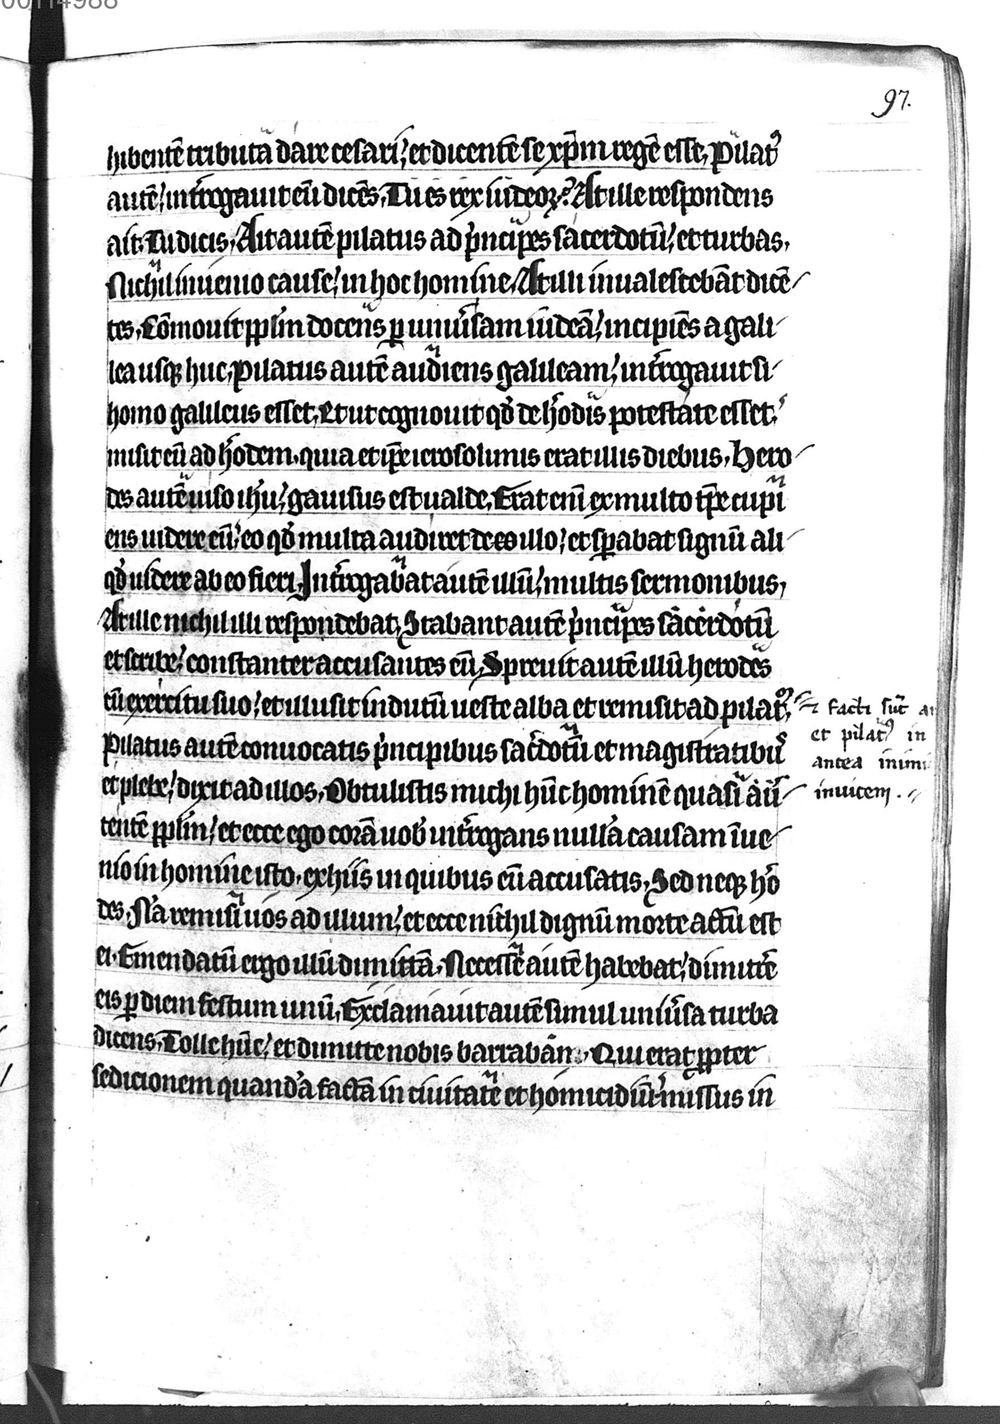 97.
hibentē tributa dare cesari, et dicentē se xp̄m regē esse, Pilatꝰ
autē, int̄rogauit eū dicēs, Tu es rex iudeoꝝ? At ille respondens
ait, Tu dicis, Ait autē pilatus ad p̄ncipes sacerdotū, et turbas,
Nichil inuenio cause, in hoc homine, At illi inualescebāt dicē
tes, Cōmouit ppl̄m docens ꝑ uniūsam iudeā, incipiēs a gali
lea usqꝫ huc, Pilatus autē audiens galileam, int̄rogauit si
homo galileus esset, Et ut cognouit qd̄ de h̄odis potestate esset,
misit eū ad h̄odem. quia et ip̄e ierosolimis erat illis diebus, Hero
des autē uiso ihū, gauisus est ualde, Erat enī ex multo tp̄e cupi
ens uidere eū, eo qd̄ multa audiret de illo, et sꝑabat signū ali
qd̄ uidere ab eo fieri, Int̄rogabat autē illū, multis sermonibus,
At ille nichil illi respondebat, Stabant autē p̄ncipes sacerdotū
et scribe, constanter accusantes eū, Spreuit autē illū herodes
cū exercitu suo, et illusit indutū ueste alba et remisit ad pilatꝰ,
⁊ facti sūt a
et pilatꝰ in
antea inimi
inuicem.
Pilatus autē conuocatis p̄ncipibus sac̄dotū et magistratibꝰ
et plebe, dixit ad illos, Obtulistis michi hūc hominē quasi aū
tentē ppl̄m, et ecce ego corā uob̄ int̄rogans nullā causam īue
nio in homine isto, ex hiis in quibus eū accusatis, Sed neqꝫ h̄o
des, Nā remisi uos ad illum, et ecce nichil dignū morte actū est
ei. Emendatū ergo illū dimittā, Necesse autē habebat, dimittē
eis ꝑ diem festum unū, Exclamauit autē simul uniūsa turba
dicens, Tolle hūc, et dimitte nobis barraban, Qui erat ꝓpter
sedicionem quandā factā in ciuitate et homicidiū missus in